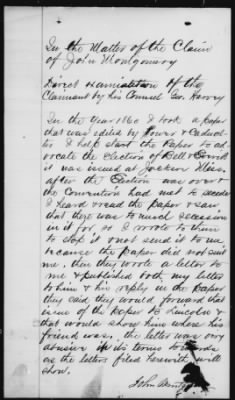 In the Matter of the Claim
of John Montgomery
Direct Examination of the
Claimant by his Counsel Geo. Harvey
In the Year 1860 I took a paper
that was edited by Power &
& I help start the Paper to ad-
vocate the election of Bell &
it was issued at Jackson Miss.
after the Election was over &
the Convention had met to secede
I heard & read the paper & saw
that there was to much Secession
in it for so I wrote to them
to stop it & not send it to me
because the paper did not suit
me. then they wrote a letter to
me & published both my letter
to him & his reply in the paper
they said they would forward that
issue of the paper to Lincoln &
that would show him where his
friend was. the letter was very
abusive in its terms towards
as the letters filed herewith will
show.
John Montgomery